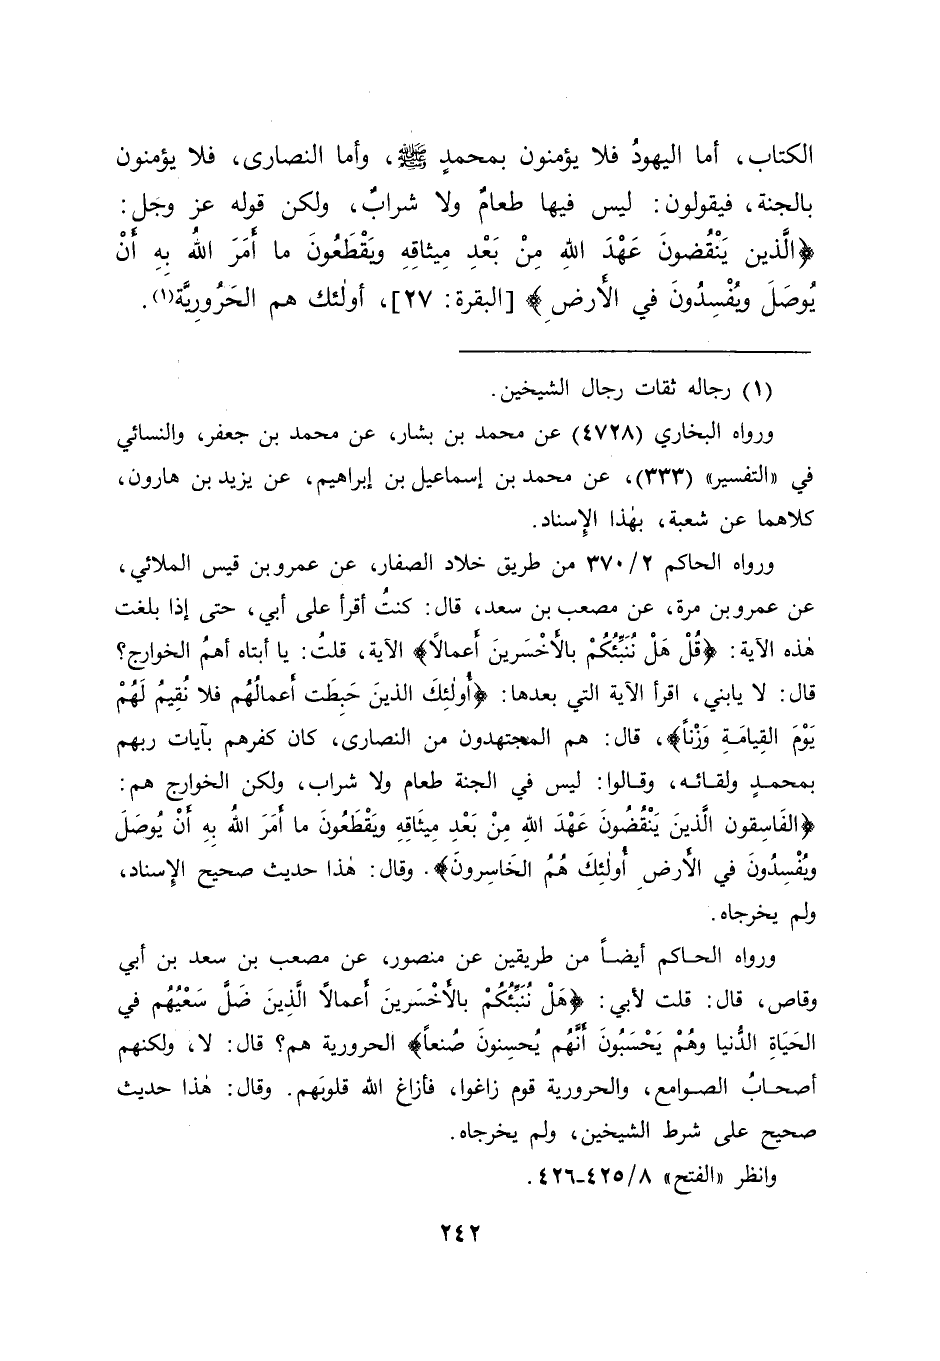 الكتاب، أما اليهودُ فلا يؤمنون بمحمدٍ ﷺ، وأما النصارى، فلا يؤمنون
بالجنة، فيقولون: ليس فيها طعامٌ ولا شرابٌ، ولكن قوله عز وجَل:
﴿الَّذين يَنْقُضونَ عَهْدَ اللهِ مِنْ بَعْدِ مِيثاقِهِ ويَقْطَعُونَ ما أَمَرَ اللهُ بِهِ أَنْ
يُوصَلَ ويُفْسِدُونَ في الأَرضِ﴾ [البقرة: ٢٧]، أولٰئك هم الحَرُوريَّة(١).
(١) رجاله ثقات رجال الشيخين.
ورواه البخاري (٤٧٢٨) عن محمد بن بشار، عن محمد بن جعفر، والنسائي
في «التفسير» (٣٣٣)، عن محمد بن إسماعيل بن إبراهيم، عن يزيد بن هارون،
كلاهما عن شعبة، بهٰذا الإِسناد.
ورواه الحاكم ٣٧٠/٢ من طريق خلاد الصفار، عن عمرو بن قيس الملائي،
عن عمرو بن مرة، عن مصعب بن سعد، قال: كنتُ أقرأ على أبي، حتى إذا بلغت
هٰذه الآية: ﴿قُلْ هَلْ نُنَبِّئُكُمْ بالأَخْسَرينَ أَعمالاً﴾ الآية، قلتُ: يا أبتاه أهمُ الخوارج؟
قال: لا يابني، اقرأ الآية التي بعدها: ﴿أُولٰئِكَ الذينَ حَبِطَت أَعمالُهُم فلا نُقِيمُ لَهُمْ
يَوْمَ القِيامَةِ وَزْناً﴾، قال: هم المجتهدون من النصارى، كان كفرهم بآيات ربهم
بمحمدٍ ولقائه، وقالوا: ليس في الجنة طعام ولا شراب، ولكن الخوارج هم:
﴿الفَاسِقون الَّذينَ يَنْقُضُونَ عَهْدَ اللهِ مِنْ بَعْدِ مِيثاقِهِ ويَقْطَعُونَ ما أَمَرَ اللهُ بِهِ أَنْ يُوصَلَ
ويُفْسِدُونَ في الأَرضِ أُولٰئِكَ هُمُ الخَاسِرونَ﴾. وقال: هٰذا حديث صحيح الإِسناد،
ولم يخرجاه.
ورواه الحاكم أيضاً من طريقين عن منصور، عن مصعب بن سعد بن أبي
وقاص، قال: قلت لأبي: ﴿هَلْ نُنَبِّئُكُمْ بالأَخْسَرينَ أَعمالاً الَّذِينَ ضَلَّ سَعْيُهُم في
الحَيَاةِ الدُّنيا وهُمْ يَحْسَبُونَ أَنَّهُم يُحسِنونَ صُنعاً﴾ الحرورية هم؟ قال: لا، ولكنهم
أصحابُ الصوامع، والحرورية قوم زاغوا، فأزاغ الله قلوبَهم. وقال: هٰذا حديث
صحيح على شرط الشيخين، ولم يخرجاه.
وانظر «الفتح» ٤٢٥/٨-٤٢٦.
٢٤٢